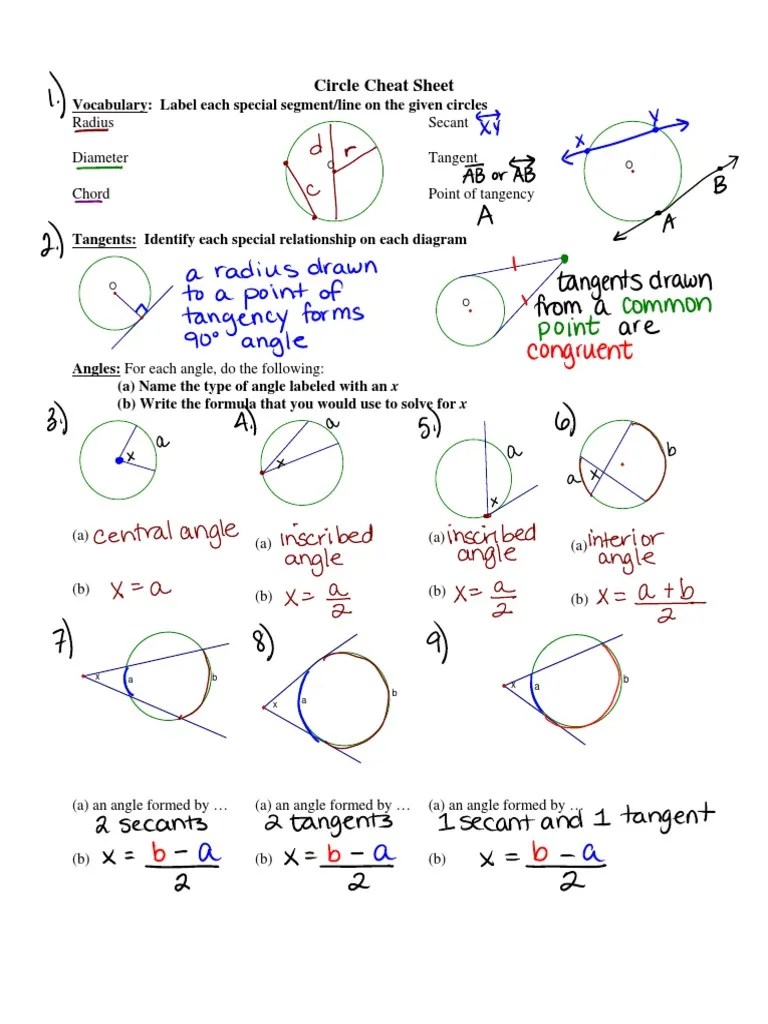 Circle Cheat Sheet
1.) Vocabulary: Label each special segment/line on the given circles
Radius
Diameter
Chord
d
r
c
O
Secant XY
Tangent
AB or AB
Point of tangency
A
X
Y
O
A
B
2.) Tangents: Identify each special relationship on each diagram
O
a radius drawn
to a point of
tangency forms
90° angle
O
tangents drawn
from a common
point are
congruent
Angles: For each angle, do the following:
(a) Name the type of angle labeled with an x
(b) Write the formula that you would use to solve for x
3.)
x
a
(a) central angle
(b) x = a
4.)
x
a
(a) inscribed
angle
(b) x = a/2
5.)
x
a
(a) inscribed
angle
(b) x = a/2
6.)
a
x
b
(a) interior
angle
(b) x = a + b/2
7)
x
a
b
(a) an angle formed by …
2 secants
(b) x = b - a/2
8)
x
a
b
(a) an angle formed by …
2 tangents
(b) x = b - a/2
9)
x
a
b
(a) an angle formed by …
1 secant and 1 tangent
(b) x = b - a/2